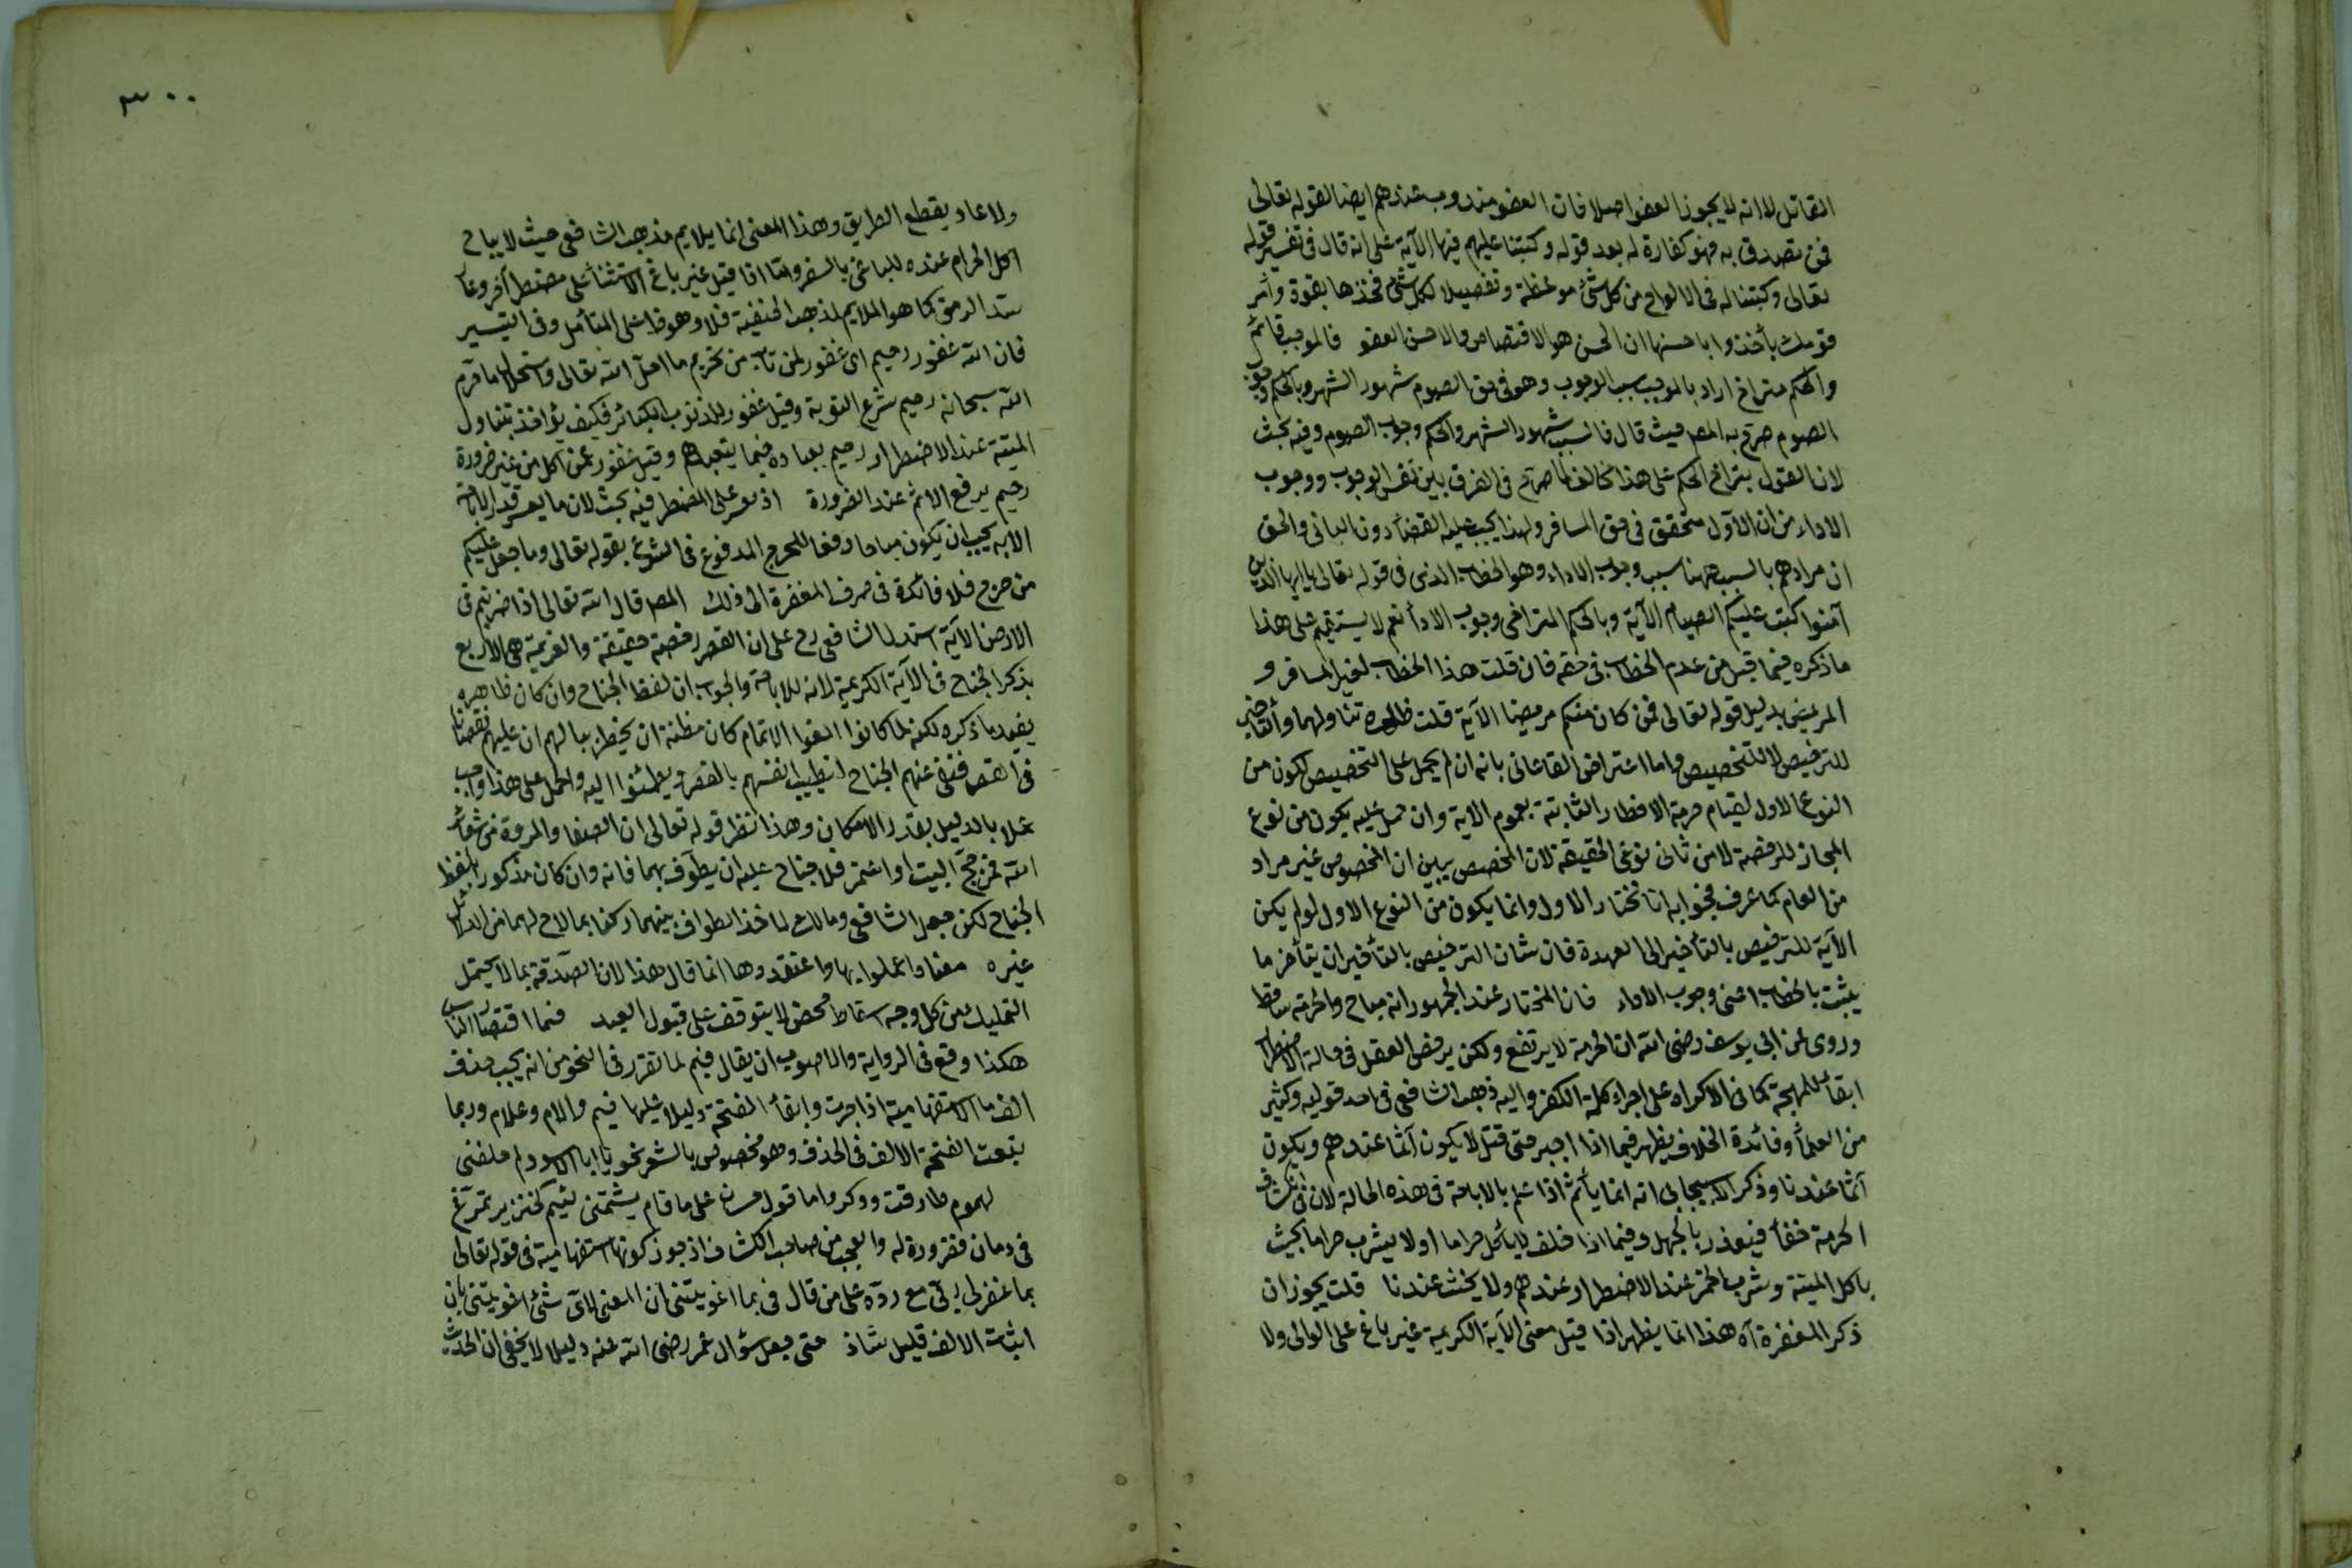 القاتل لا انه لا يجوز العفو اصلا فان العفو مندوب عندهم ايضا لقوله تعالى
فمن تصدق به فهو كفارة له بعد قوله وكتبنا عليهم فيها الآية على انه قال في تفسير قوله
تعالى وكتبنا له في الالواح من كل شئ موعظة وتفصيلا لكل شئ فخذها بقوة وأمر
قومك يأخذوا باحسنها ان الحسن هو الاقتصاص والاحسن العفو فالموجب قائم
والحكم متراخ اراد بالموجب سبب الوجوب وهو في حق الصوم شهود الشهر وبالحكم وجوب
الصوم صرح به المص حيث قال فالسبب شهود الشهر والحكم وجوب الصوم وفيه بحث
لان القول بتراخى الحكم على هذا مخالف لما صرح في الفرق بين نفس الوجوب ووجوب
الاداء من ان الاول متحقق في حق المسافر ولهذا يجب عليه القضاء دون الثاني والحق
ان مرادهم بالسبب ههنا سبب وجوب الاداء وهو الخطاب الذي في قوله تعالى يا ايها الذين
آمنوا كتب عليكم الصيام الآية وبالحكم المتراخى وجوب الاداء نعم لا يستقيم على هذا
ما ذكره فيما قبل من عدم الخطاب في حقه فان قلت هذا الخطاب لغير المسافر و
المريض بدليل قوله تعالى فمن كان منكم مريضا الآية قلت ظاهره تناولهما والتأخير
للترخيص لا للتخصيص واما اعتراض القاءانى بانه ان لم يحمل على التخصيص لكون من
النوع الاول لقيام حرمة الافطار الثابتة بعموم الآية وان حمل عليه يكون من نوع
المجاز للرخصة لا من ثانى نوعى الحقيقة لان المخصص يبين ان المخصوص غير مراد
من العام كما عرف فجوابه انا نختار الاول وانما يكون من النوع الاول لو لم يكن
الآية للترخيص بالتأخير الى العهدة فان شان الترخيص بالتأخير ان يتأخر ما
يثبت بالخطاب اعنى وجوب الاداء فان المختار عند الجمهور انه مباح والحرمة ساقطة
وروى عن ابى يوسف رضى الله ان الحرمة لا يرتفع ولكن يرخص الفعل في حالة الاضطرار
ابقاء للمهجة كما في الاكراه على اجراء كلمة الكفر واليه ذهب الشافعى في احد قوليه وكثير
من العلماء وفائدة الخلاف يظهر فيما اذا اجبر حتى قتل لا يكون آثما عندهم ويكون
آثما عندنا وذكر الاسبيجابى انه انما يأثم اذا علم بالاباحة في هذه الحالة لان في انكشاف
الحرمة خفاء فيعذر بالجهل وفيما اذا حلف لا يأكل حراما او لا يشرب حراما يحنث
باكل الميتة وشرب الخمر عند الاضطرار عندهم ولا يحنث عندنا قلت يجوز ان
ذكر المغفرة آه هذا انما يظهر اذا قيل معنى الآية الكريمة غير باغ على الوالى ولا
٣٠٠
ولا عاد يقطع الطريق وهذا المعنى انما يلايم مذهب الشافعى حيث لا يباح
اكل الحرام عنده للباغى بالسفر واما اذا قيل غير باغ الاستثناء على مضطر آخر وعاد
سد الرمق كما هو الملايم لمذهب الحنفية فلا وهو ظ على المتأمل وفي التيسير
فان الله غفور رحيم اى غفور لمن تاب من تحريم ما احل الله تعالى واستحلال ما حرم
الله سبحانه رحيم شرع التوبة وقيل غفور للذنوب الكبائر فكيف يؤاخذ بتناول
الميتة عند الاضطرار رحيم بعباده فيما يتعبدهم وقيل غفور عن اكل من غير ضرورة
رحيم يرفع الاثم عند الضرورة اذ يعسر على المضطر فيه بحث لان ما يعسر قدر الاباحة
الا به يجب ان يكون مباحا دفعا للحرج المدفوع في الشرع بقوله تعالى وما جعل عليكم
من حرج فلا فائدة في صرف المغفرة الى ذلك المص قال الله تعالى اذا ضربتم في
الارض الآية استدل الشافعى رح على ان القصر رخصة حقيقة والعزيمة هى الاربع
بذكر الجناح في الآية الكريمة لانه للاباحة والجواب ان لفظ الجناح وان كان ظاهره
يفيد ما ذكره لكنه لما كانوا الفوا الاتمام كان مظنة ان يخطر ببالهم ان عليهم نقصانا
في القصر فنفى عنهم الجناح لتطيب انفسهم بالقصر ويطمئنوا اليه والحمل على هذا واجب
عملا بالدليل بقدر الامكان وهذا نظر قوله تعالى ان الصفا والمروة من شعائر
الله فمن حج البيت او اعتمر فلا جناح عليه ان يطوف بهما فانه وان كان مذكورا بلفظ
الجناح لكن جعل الشافعى ومالك لما خذ الطواف بينهما ركنا بما لاح لهما من الدلائل
غيره معنا واعملوا بها واعتقدوها انما قال هذا لان الصدقة بما لا يحتمل
التمليك من كل وجه اسقاط محض لا يتوقف على قبول العبد فبما اقتصار الناس
هكذا وقع في الرواية والاصوب ان يقال فيم لما تقرر في النحو من انه يجب حذف
الف ما الاستفهامية اذا جرت وابقاء الفتحة دليلا عليها فيم والام وعلام وربما
تبعت الفتحة الالف في الحذف وهو مخصوص بالشعر نحو يا ابا الاسود لم خلفتنى
لهموم طارقات وذكر واما قول حسان على ما قام يشتمنى لئيم كخنزير تمرغ
في دمان فضرورة له والعجب من صاحب الكشاف اذ جوز كونها استفهامية في قوله تعالى
بما غفر لى ربى مع رده على من قال في بما اغويتنى ان المعنى لاى شئ اغويتنى بان
اثبات الالف قليل شاذ حتى جعل سؤال عمر رضى الله عنه دليلا لا يخفى ان الحديث